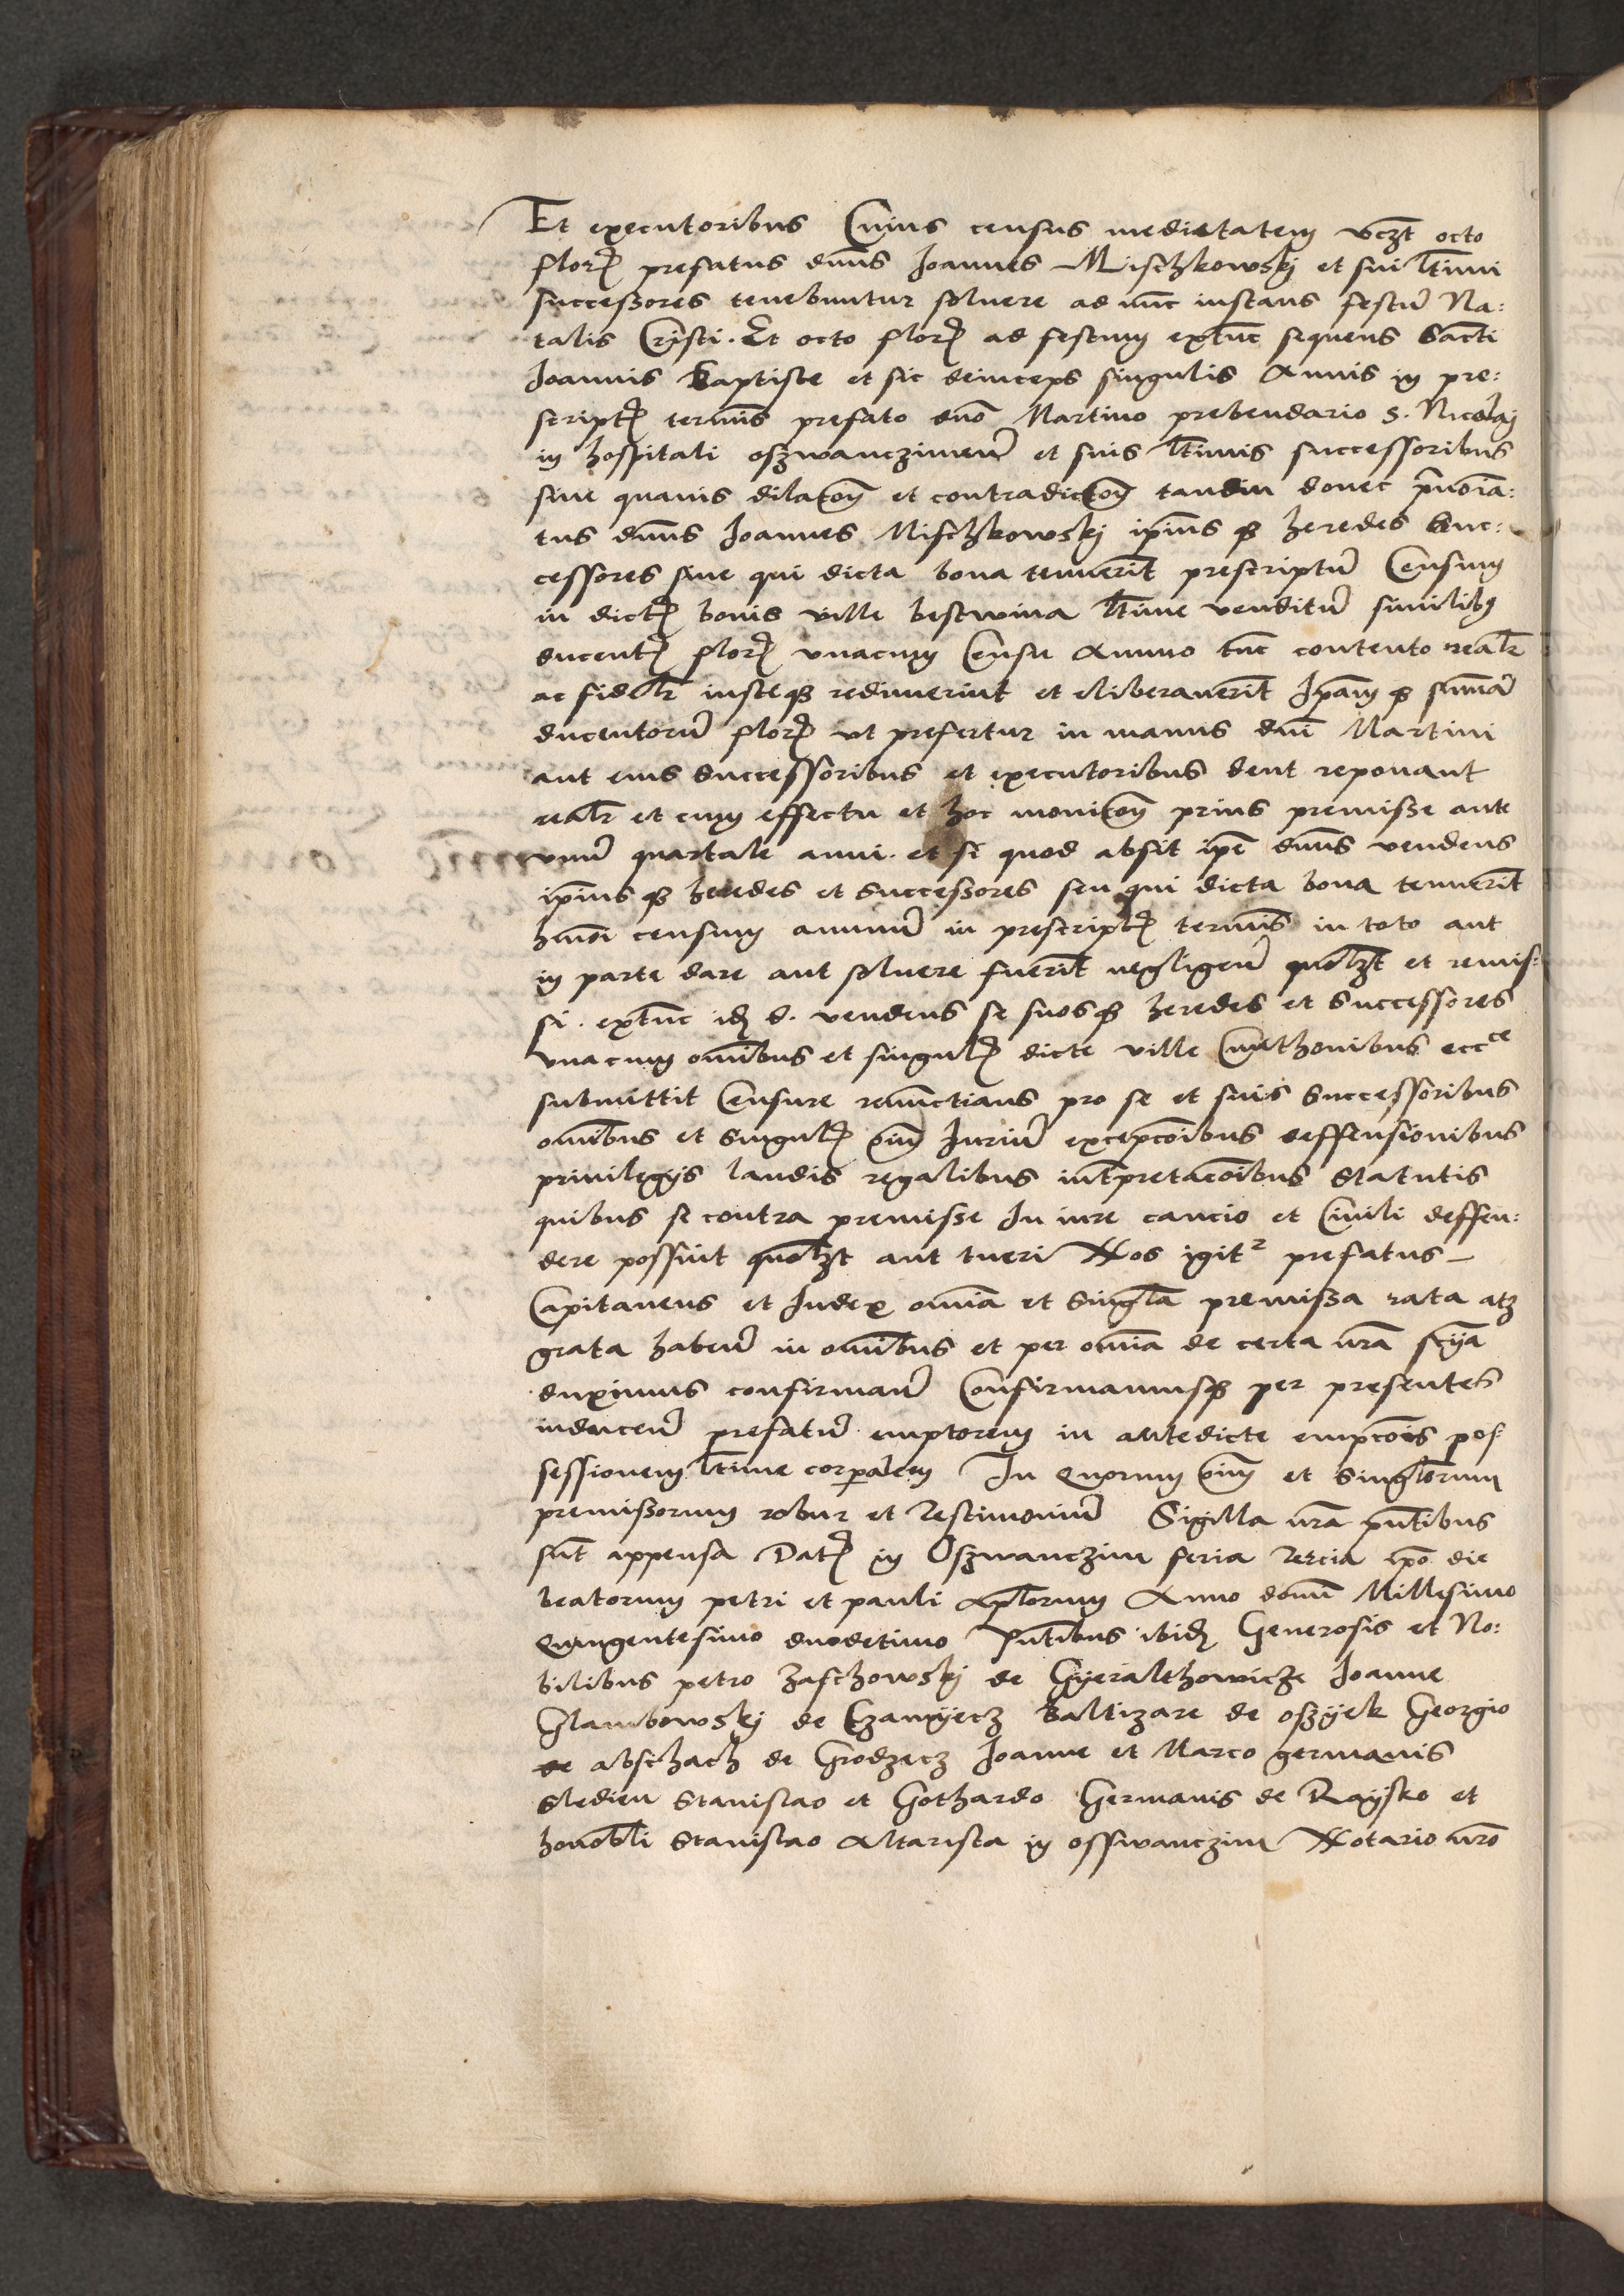 Et executoribus Cuius census medietatem vczt octo
flor prefatus dnus Joannes Mischkowskj et sui ltimi
successores tenebuntur soluere ad nuc instans festu Na:
talis Cristi. Et octo flor ad festum extuc sequens Sacti
Joannis Baptiste et sic deinceps singulis Annis in pre:
script termis prefato dno Martino prebendario S. Nicolaj
in hospitali oszwanczimen et suis ltimis successoribus
sine quauis dilacon et contradiccon tandiu donec
tus dnus Joannes Mischkowskj ipius qz heredes Suc:
cessores siue qui dicta bona tenuerit prescriptu Censum
in dict bonis ville bestwina ltime venditu similibz
ducent flor vnacum Censu Annuo tuc contento realr
ac fidelr iusteqz redimerint et eliberauerit Ipam qz suma
ducentoru flor vt prefertur in manus dni Martini
aut eius Successoribus et executoribus dent reponant
realr et cum effectu et hoc monicon prius premisse ante
vnu quartale anni. et si quod absit ipe dnus vendens
ipius qz heredes et Successores seu qui dicta bona tenuerit
hmoi censum annuu in prescript termis in toto aut
in parte dare aut soluere fuerit negligen quolzt et remis:
si. extuc id d. vendens se suosqz heredes et Successores
vnacum omibus et singul dicte ville Cmethonibus eccce
submittit Censure renunctians pro se et suis Successoribus
omibus et Singul oim Iuriu excepcoibus deffensionibus
priuilegijs laudis regalibus intpretacoibus Statutis
quibus se contra premisse In iure canoio et Ciuili deffen:
dere possint quolzt aut tueri Nos igit prefatus
Capitaneus et Iudex omia et Singula premissa rata atz
grata haben in omibus et per omia de certa nra scia
duximus confirman Confirmamusqz per presentes
inducen prefatu emptorem in antedicte empcois pos
sessionem ltime corporalem In Quorum oim et Singlorum
premissorum robur et Testimoniu Sigilla nra pntibus
sut appensa Dat in Oszwanczim feria Tercia ipo die
beatorum petri et pauli Aplorum Anno domi Millesimo
Quingentesimo duodecimo Pntibus ibid Generosis et No:
bilibus petro Zaschowskj de Gyeralthowicze Joanne
Glambowskj de Czamyecz Baltizare de oszyek Georgio
de abschach de Grodzecz Joanne et Marco germanis
Stanislao et Gothardo Germanis de Raysko et
honobli Stanislao Altarista in osswanczim Notario nro